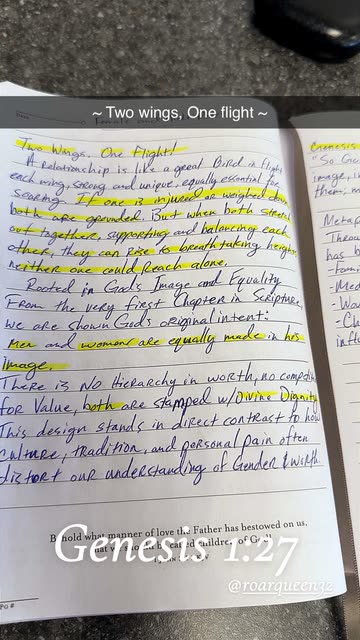 ~ Two wings, One flight ~
Two Wings. One Flight!
A Relationship is like a great Bird in flight
each wing, strong and unique, equally essential for
soaring. If one is injured or weighed down
both are grounded. But when both stretch
out together, supporting and balancing each
other, they can rise to breathtaking heights
neither one could reach alone.
Rooted in God's Image and Equality
From the very first Chapter in Scripture,
we are shown God's original intent:
Men and women are equally made in his
image.
There is No Hierarchy in worth, no
for Value, both are stamped w/Divine Dignity
This design stands in direct contrast to how
culture, tradition, and personal pain often
distort our understanding of Gender & worth
Behold what manner of love the Father has bestowed on us,
that we should be called children of God!
Genesis 1:27
@roarqueen32
Genesis
"So God
image, i
them; m
Metap
Throu
has b